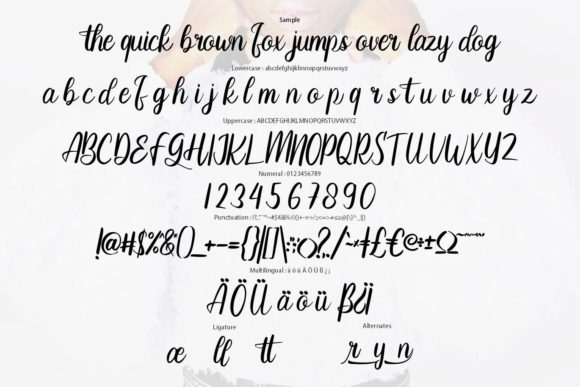 Sample
the quick brown fox jumps over lazy dog
Lowercase : abcdefghijklmnopqrstuvwxyz
a b c d e f g h i j k l m n o p q r s t u v w x y z
Uppercase : ABCDEFGHIJKLMNOPQRSTUVWXYZ
ABCDEFGHIJKLMNOPQRSTUVWXYZ
Numeral : 0123456789
1234567890
Punctuation :
!@#$%&()_+-={}|[]\:
Multilingual : ä ö ü Ä Ö Ü ß ¿ ¡
ÄÖÜ äöü ß¿¡
Ligature Alternates
œ ll tt r y n